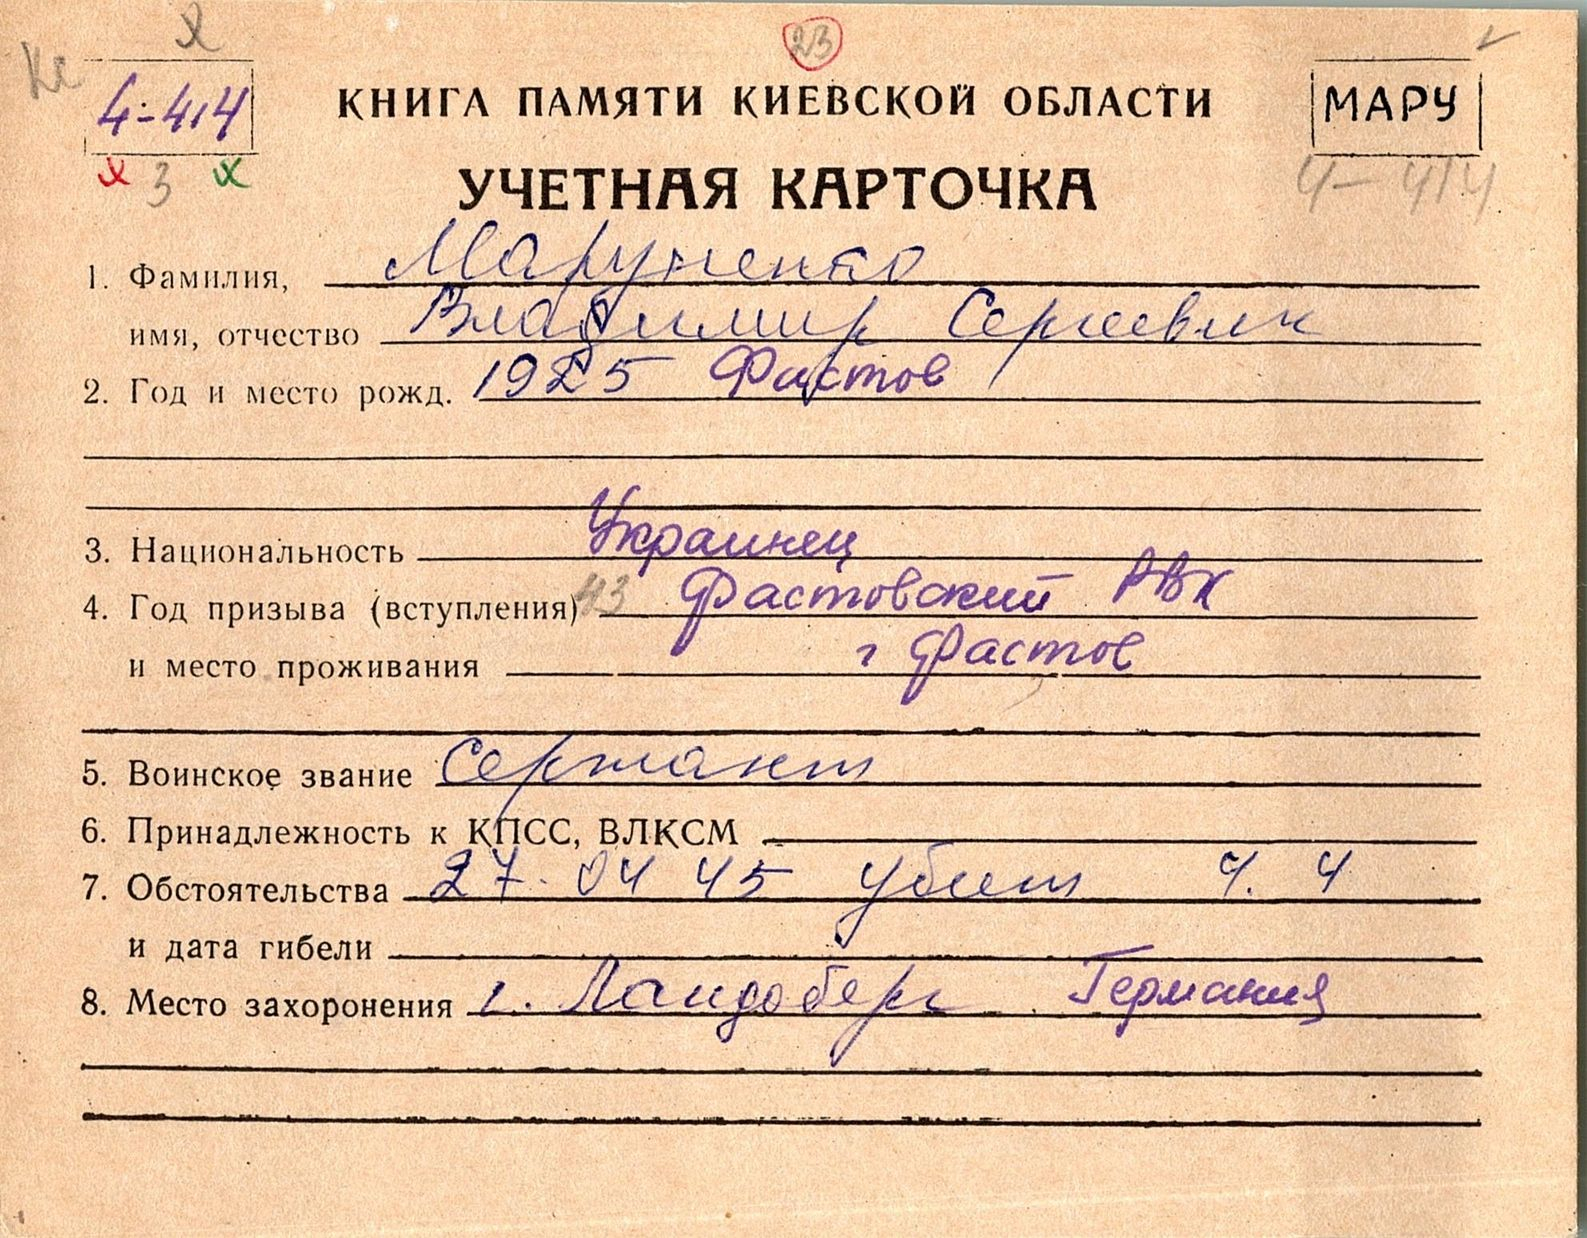 23
4-414
КНИГА ПАМЯТИ КИЕВСКОЙ ОБЛАСТИ
МАРУ
3
4-414
УЧЕТНАЯ КАРТОЧКА
1. Фамилия, Маруненко
имя, отчество Владимир Сергеевич
2. Год и место рожд. 1925 Фастов
3. Национальность Украинец
4. Год призыва (вступления) 43 Фастовский РВК
и место проживания г Фастов
5. Воинское звание Сержант
6. Принадлежность к КПСС, ВЛКСМ
7. Обстоятельства 27.04 45 убит 4. 4
и дата гибели
8. Место захоронения г. Ландсберг Германия